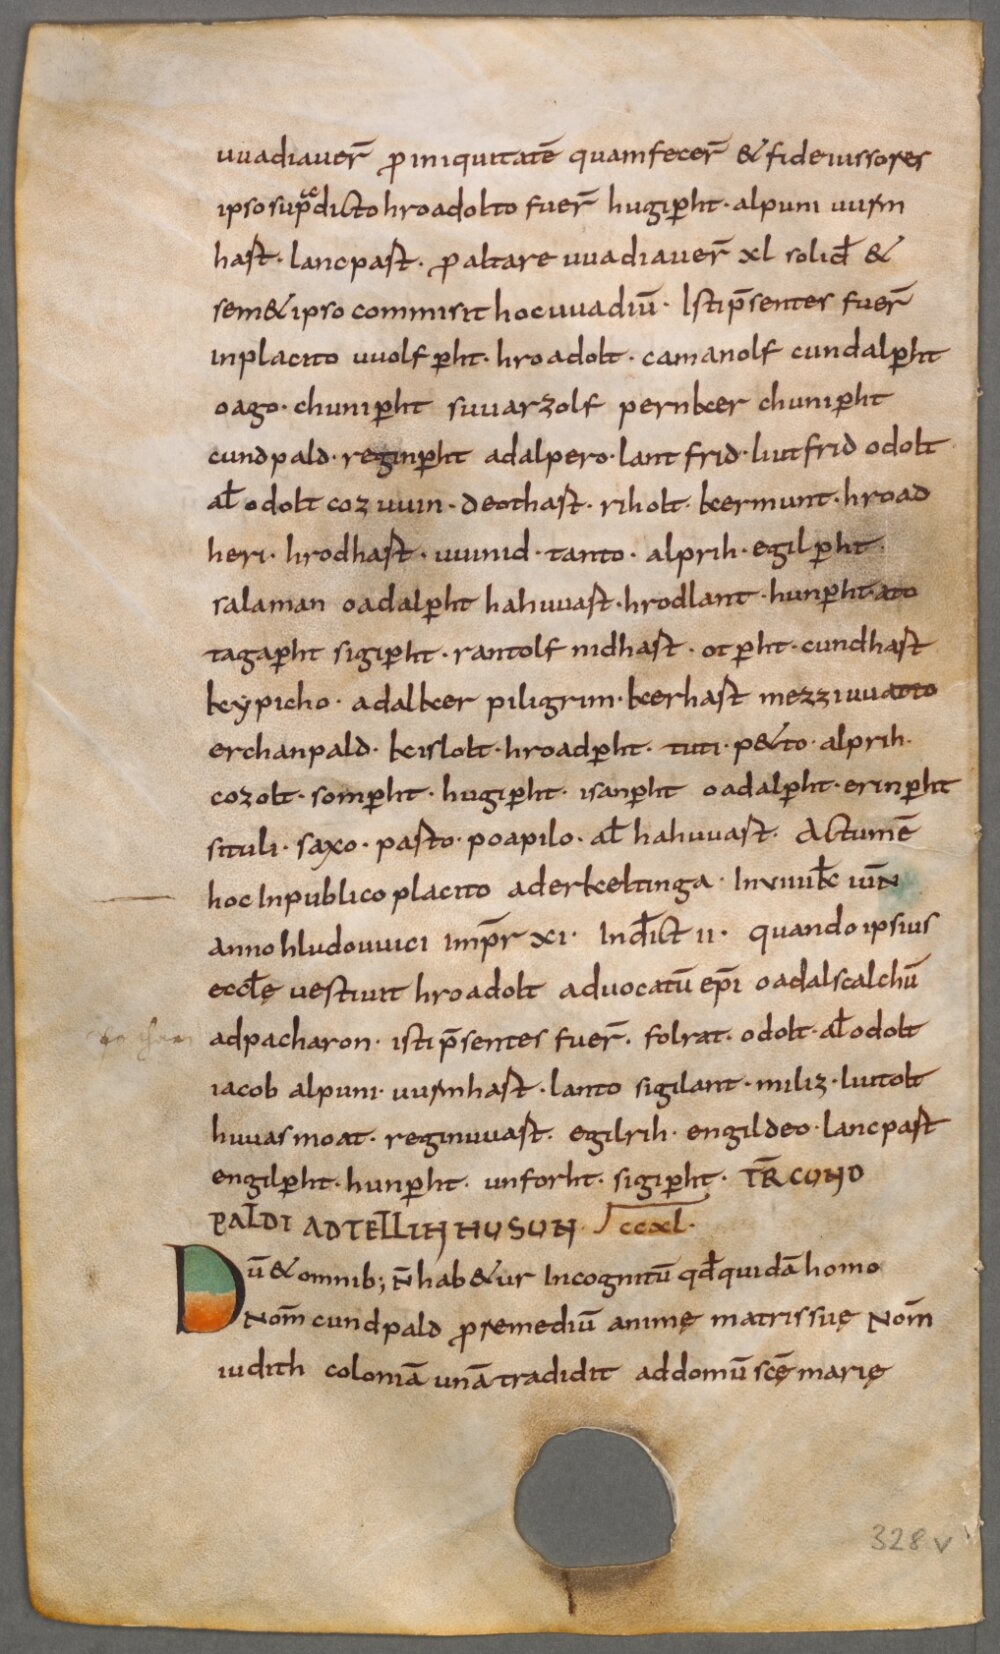 uuadiauer̄ ꝓ iniquitatē quam fecer̄ & fideiussores
ipso sup̄ace dicto hroadolto fuer̄ hugip̄ht · alpuni uurm
hast · lancpast · ꝓ altare uuadiauer̄ xl solid̄ &
sem& ipso commisit hoc uuadiū · Isti p̄sentes fuer̄
in placito uuolfp̄ht · hroadolt · camanolf cundalp̄ht
oago · chunip̄ht suuarzolf pernker chunip̄ht
cundpald · reginp̄ht adalpero · lantfrid · liutfrid odolt
al̄ odolt cozuuin · deothast · riholt · kermunt · hroad
heri · hrodhast · uuinid · tanto · alprih · egilp̄ht ·
salaman oadalp̄ht hahuuast · hrodlant · hunp̄ht · ato
tagap̄ht sigip̄ht · rantolf nidhast · otp̄ht · cundhast
keypicho · adalker piligrim · kerhast mezzi uuatto
erchanpald · keislolt · hroadp̄ht · tuti · p&to · alprih ·
cozolt · somp̄ht · hugip̄ht · isanp̄ht oadalp̄ht · erinp̄ht
situli · saxo · pasto · poapilo · al̄ hahuuast · Actum ē
hoc In publico placito ad erkeltinga · In viiii kł iūn
anno hludouuici imp̄r xi · Ind̄ict ii · quando ipsius
eccłę uestiuit hroadolt aduocatū ep̄i oadalscalchū
ad pacharon · isti p̄sentes fuer̄ · folrat · odolt · al̄ odolt
iacob alpuni · uurmhast · lanto sigilant · miliz · liutolt
huuasmoat · reginuuast · egilrih · engildeo · lancpast
engilp̄ht · hunp̄ht · unforht · sigip̄ht · TR̄ COND
PALDI AD TELLINHUSUN · ccxl ·
Dū & omnib; n̄ hab&ur Incognitū qđ quidā homo
Nom̄ cundpald ꝓ remediū animę matris suę Nom̄
iudith coloniā unā tradidit ad domū scę̄ marię
328 v